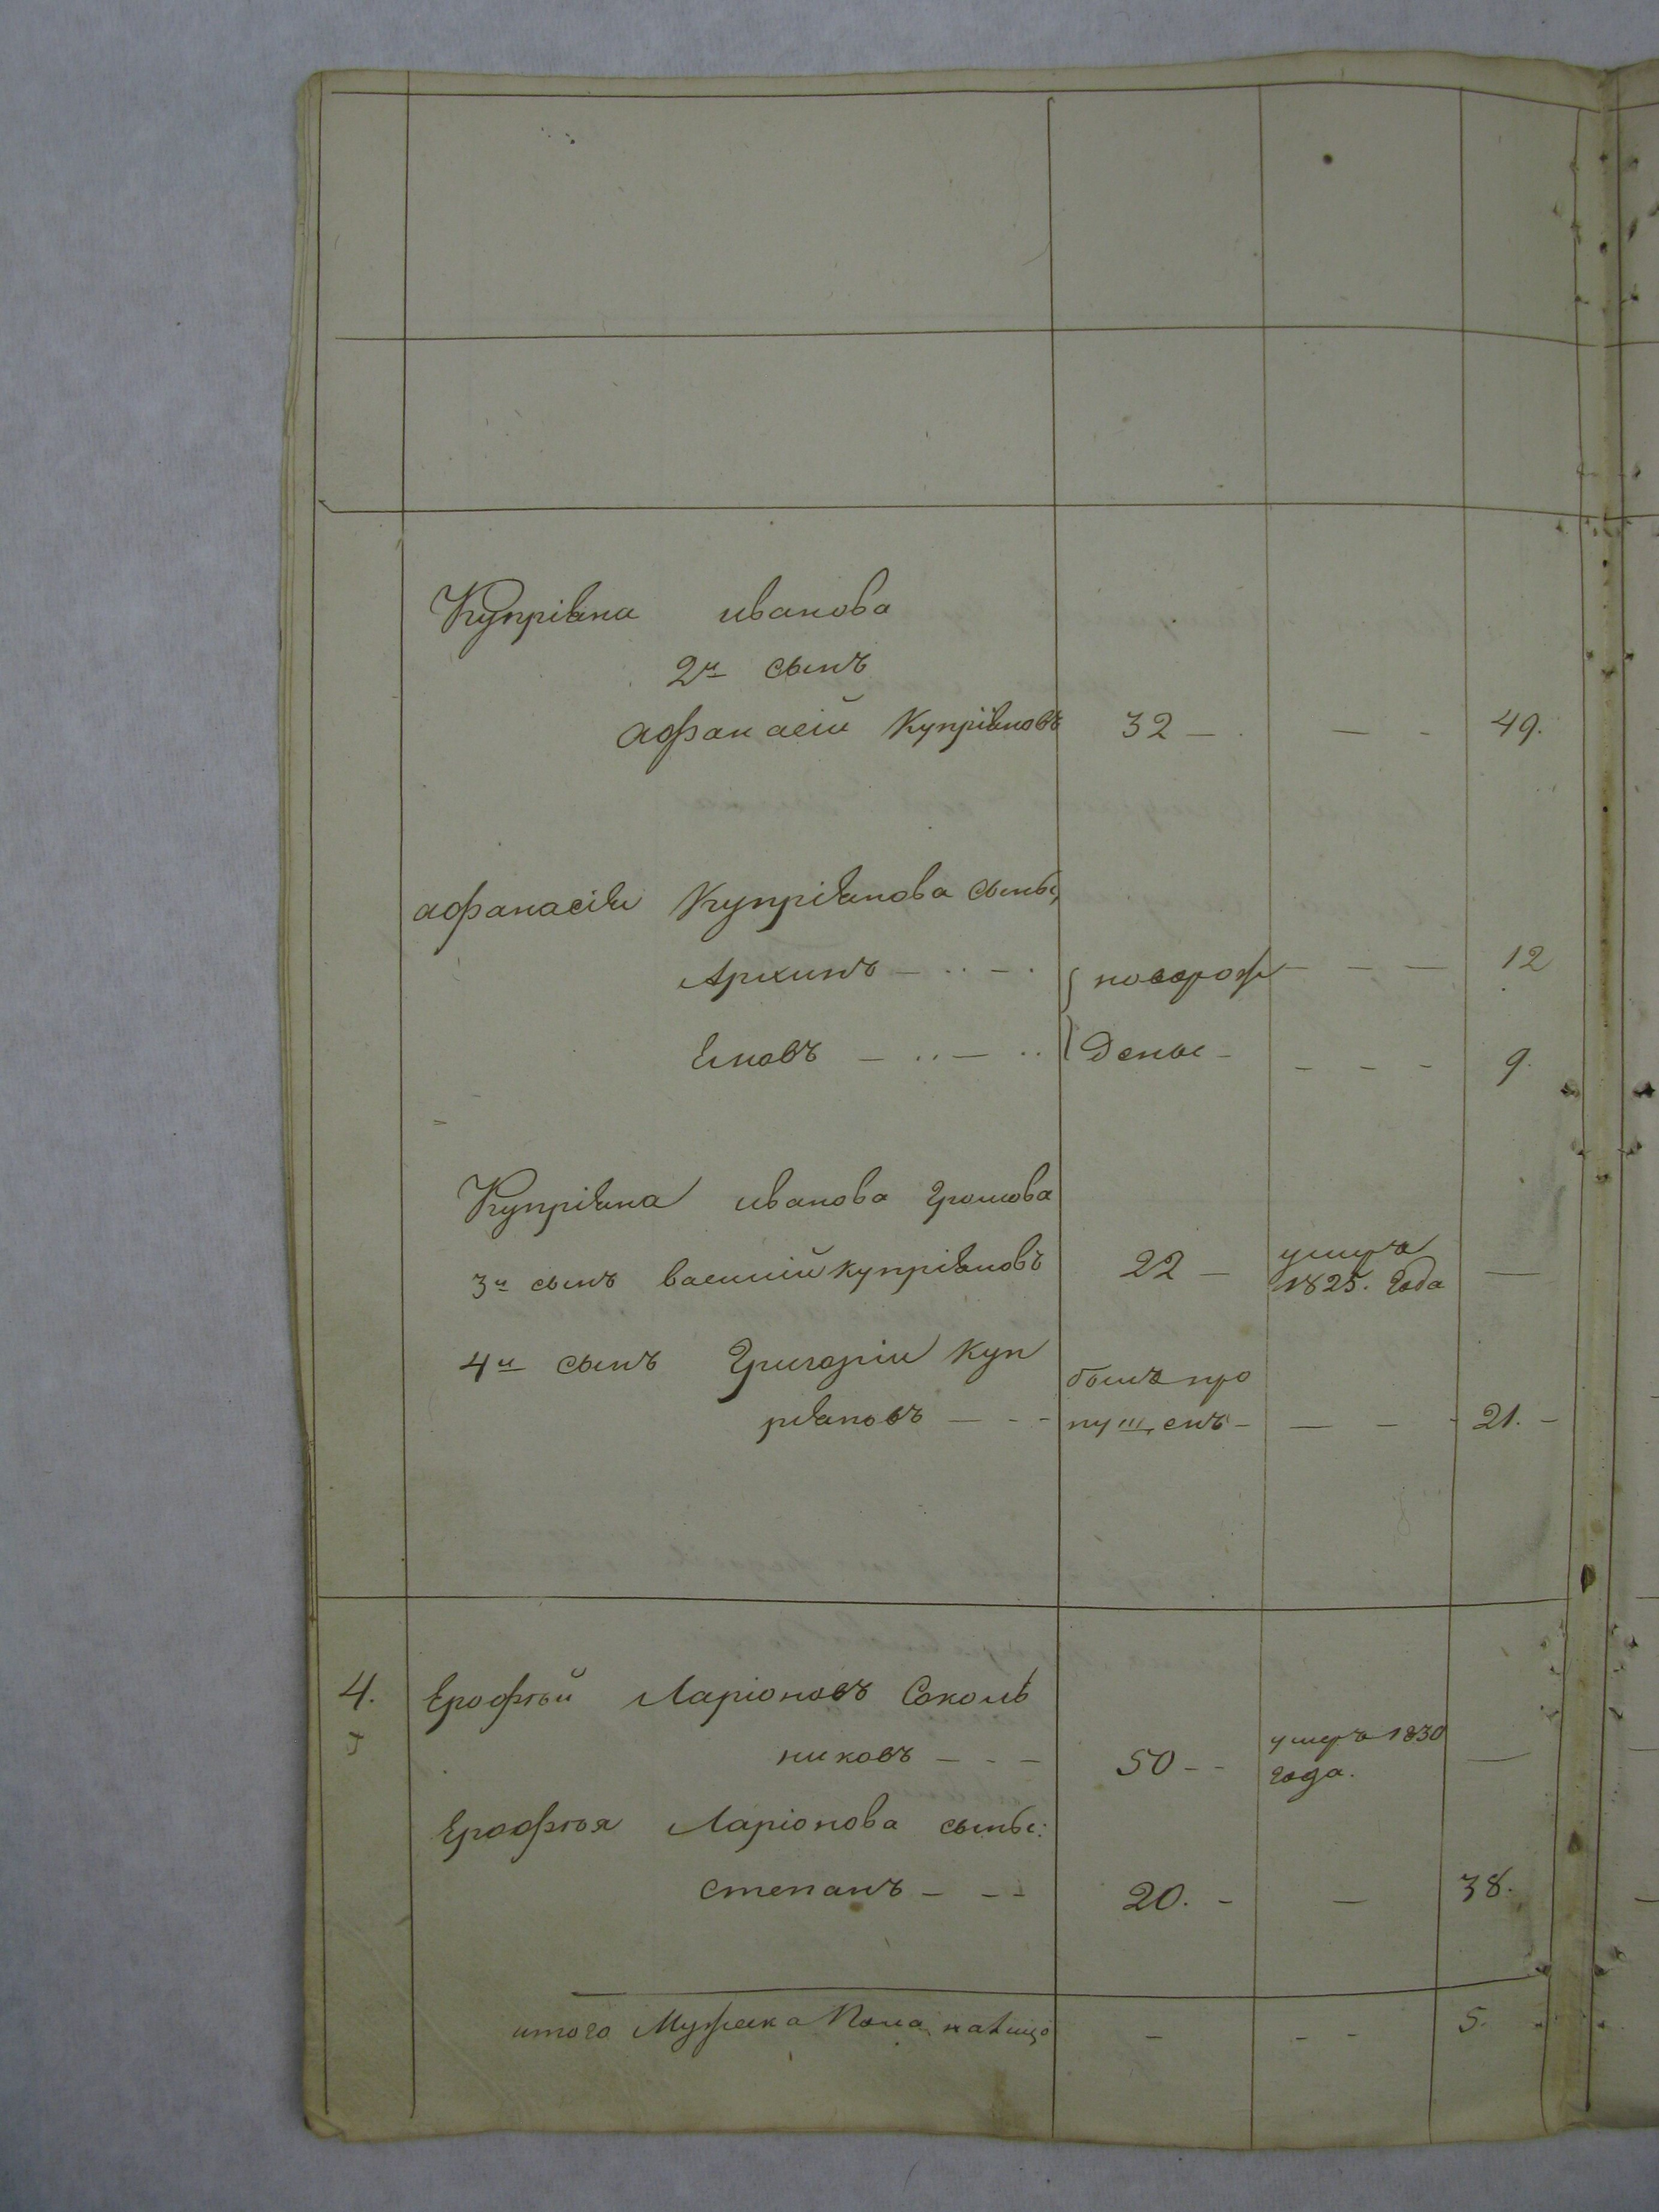 Купріяна иванова
2й сынъ
афанасіи Купріяновъ 32 — — - 49.
афанасія Купріянова сыны,
Архипъ — новорож — — — 12
Еловъ — деные - - - - 9.
Купріяна иванова Громова
3й сынъ василій купріяновъ 22 — умеръ 1825. года —
4й сынъ Григоріи Куп былъ про
ріановъ — - - пущенъ - — - - 21. -
4. Ерофѣй Ларіоновъ Соколь
никовъ — - - 50 - - умеръ 1830 года. —
Ерофѣя Ларіонова сыны:
степанъ - - - 20. - — 38.
итого Мужска Пола налицо - - - 5.